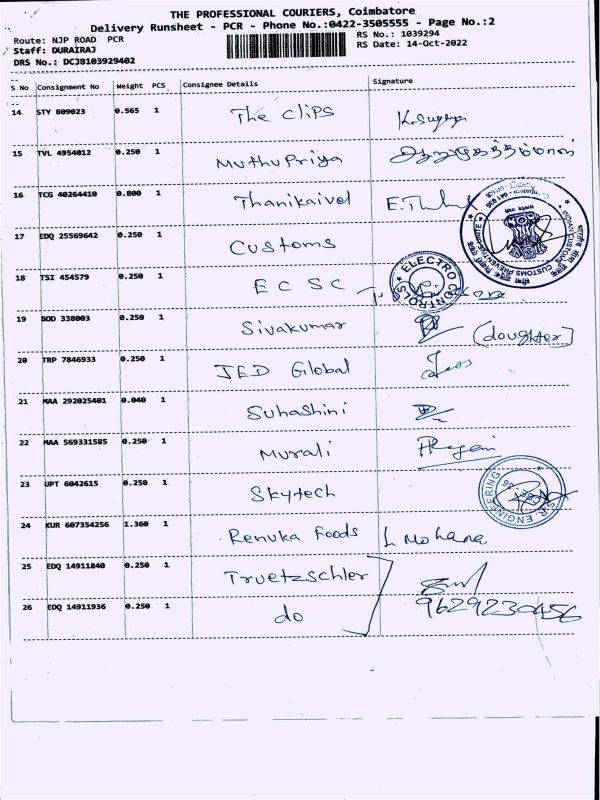 THE PROFESSIONAL COURIERS, Coimbatore
Delivery Runsheet - PCR - Phone No.:0422-3505555 - Page No.:2
Route: NJP ROAD PCR
RS No.: 1039294
Staff: DURAIRAJ
RS Date: 14-Oct-2022
DRS No.: DCJB103929402
S No Consignment No Weight PCS Consignee Details Signature
14 STY 809023 0.565 1 The Clips
15 TVL 4954012 0.250 1 Muthu Priya
16 TCG 40264410 0.800 1 Thanikaivel
17 EDQ 25569642 0.250 1 Customs
INDIAN CUSTOMS PREVENTIVE UNIT
18 TSI 454579 0.250 1 E C S C
ELECTRO CONTROLS
19 BOD 338003 0.250 1 Sivakumar (doughter)
20 TRP 7846933 0.250 1 JED Global
21 MAA 292025401 0.040 1 Suhashini
22 MAA 569331585 0.250 1 Murali
23 UPT 6042615 0.250 1 Skytech
ENGINEERING
24 KUR 607354256 1.360 1 Renuka Foods L Mohana
25 EDQ 14911840 0.250 1 Truetzschler
26 EDQ 14911936 0.250 1 do 9629230456